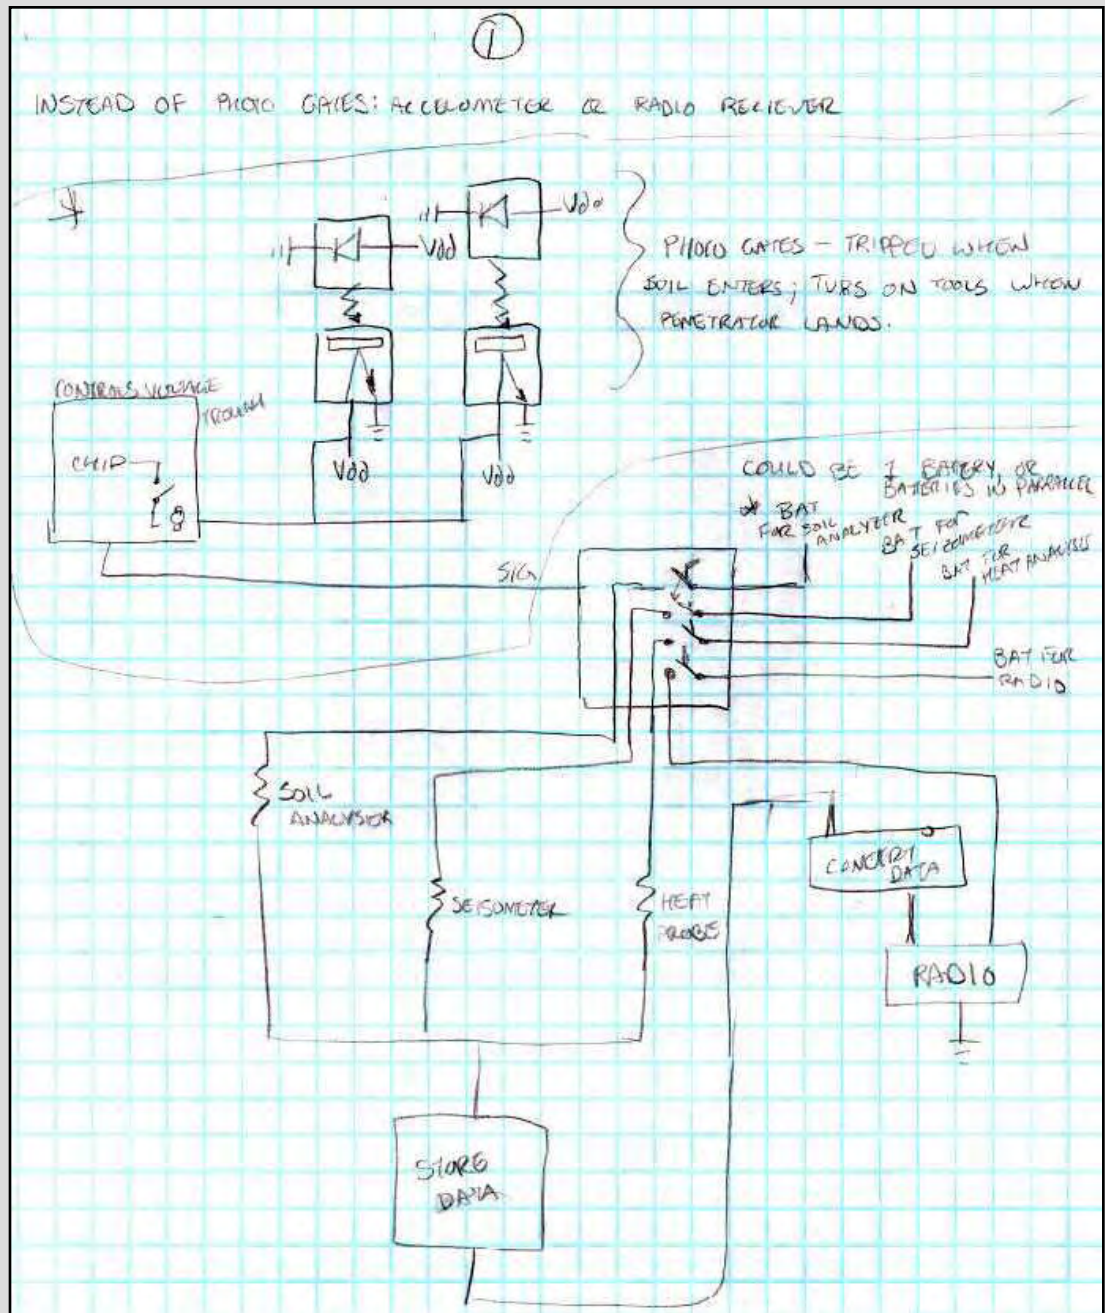 1
INSTEAD OF PHOTO GATES: ACCELOMETER OR RADIO RECIEVER
Vdd
Vdd
PHOTO GATES - TRIPPED WHEN
SOIL ENTERS; TURS ON TOOLS WHEN
PENETRATOR LANDS.
CONTROLS VOLTAGE
TROUGH
CHIP
Vdd
Vdd
COULD BE 1 BATERY, OR
BATERIES IN PARRALLEL
BAT
FOR SOIL
ANALYZER
BAT FOR
SEIZOMETER
BAT FOR
HEAT ANALYSIS
SIG
BAT FOR
RADIO
SOIL
ANALYSIER
SEISOMETER
HEAT
PROBE
CONVERT
DATA
RADIO
STORE
DATA